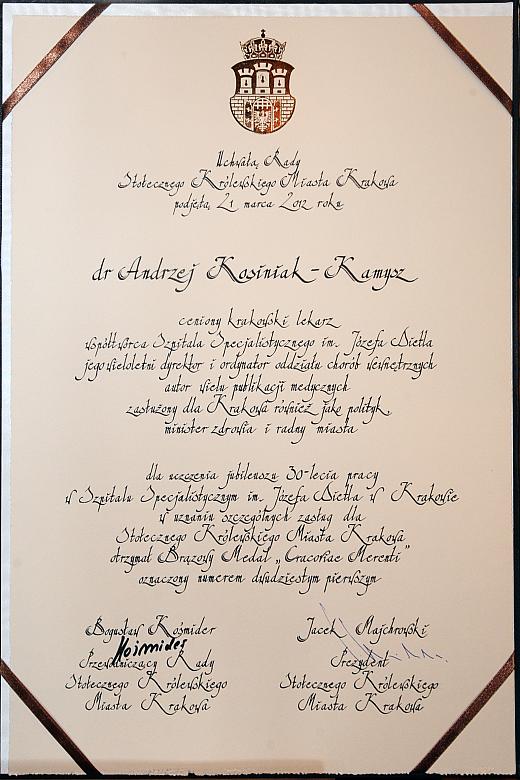 Uchwałą Rady
Stołecznego Królewskiego Miasta Krakowa
podjętą 21 marca 2012 roku
dr Andrzej Kosiniak-Kamysz
ceniony krakowski lekarz
współtwórca Szpitala Specjalistycznego im. Józefa Dietla
jego wieloletni dyrektor i ordynator oddziału chorób wewnętrznych
autor wielu publikacji medycznych
zasłużony dla Krakowa również jako polityk,
minister zdrowia i radny miasta
dla uczczenia jubileuszu 30-lecia pracy
w Szpitalu Specjalistycznym im. Józefa Dietla w Krakowie
w uznaniu szczególnych zasług dla
Stołecznego Królewskiego Miasta Krakowa
otrzymał Brązowy Medal „Cracoviae Merenti”
oznaczony numerem dwudziestym pierwszym
Bogusław Kośmider
Kośmider
Przewodniczący Rady
Stołecznego Królewskiego
Miasta Krakowa
Jacek Majchrowski
Prezydent
Stołecznego Królewskiego
Miasta Krakowa